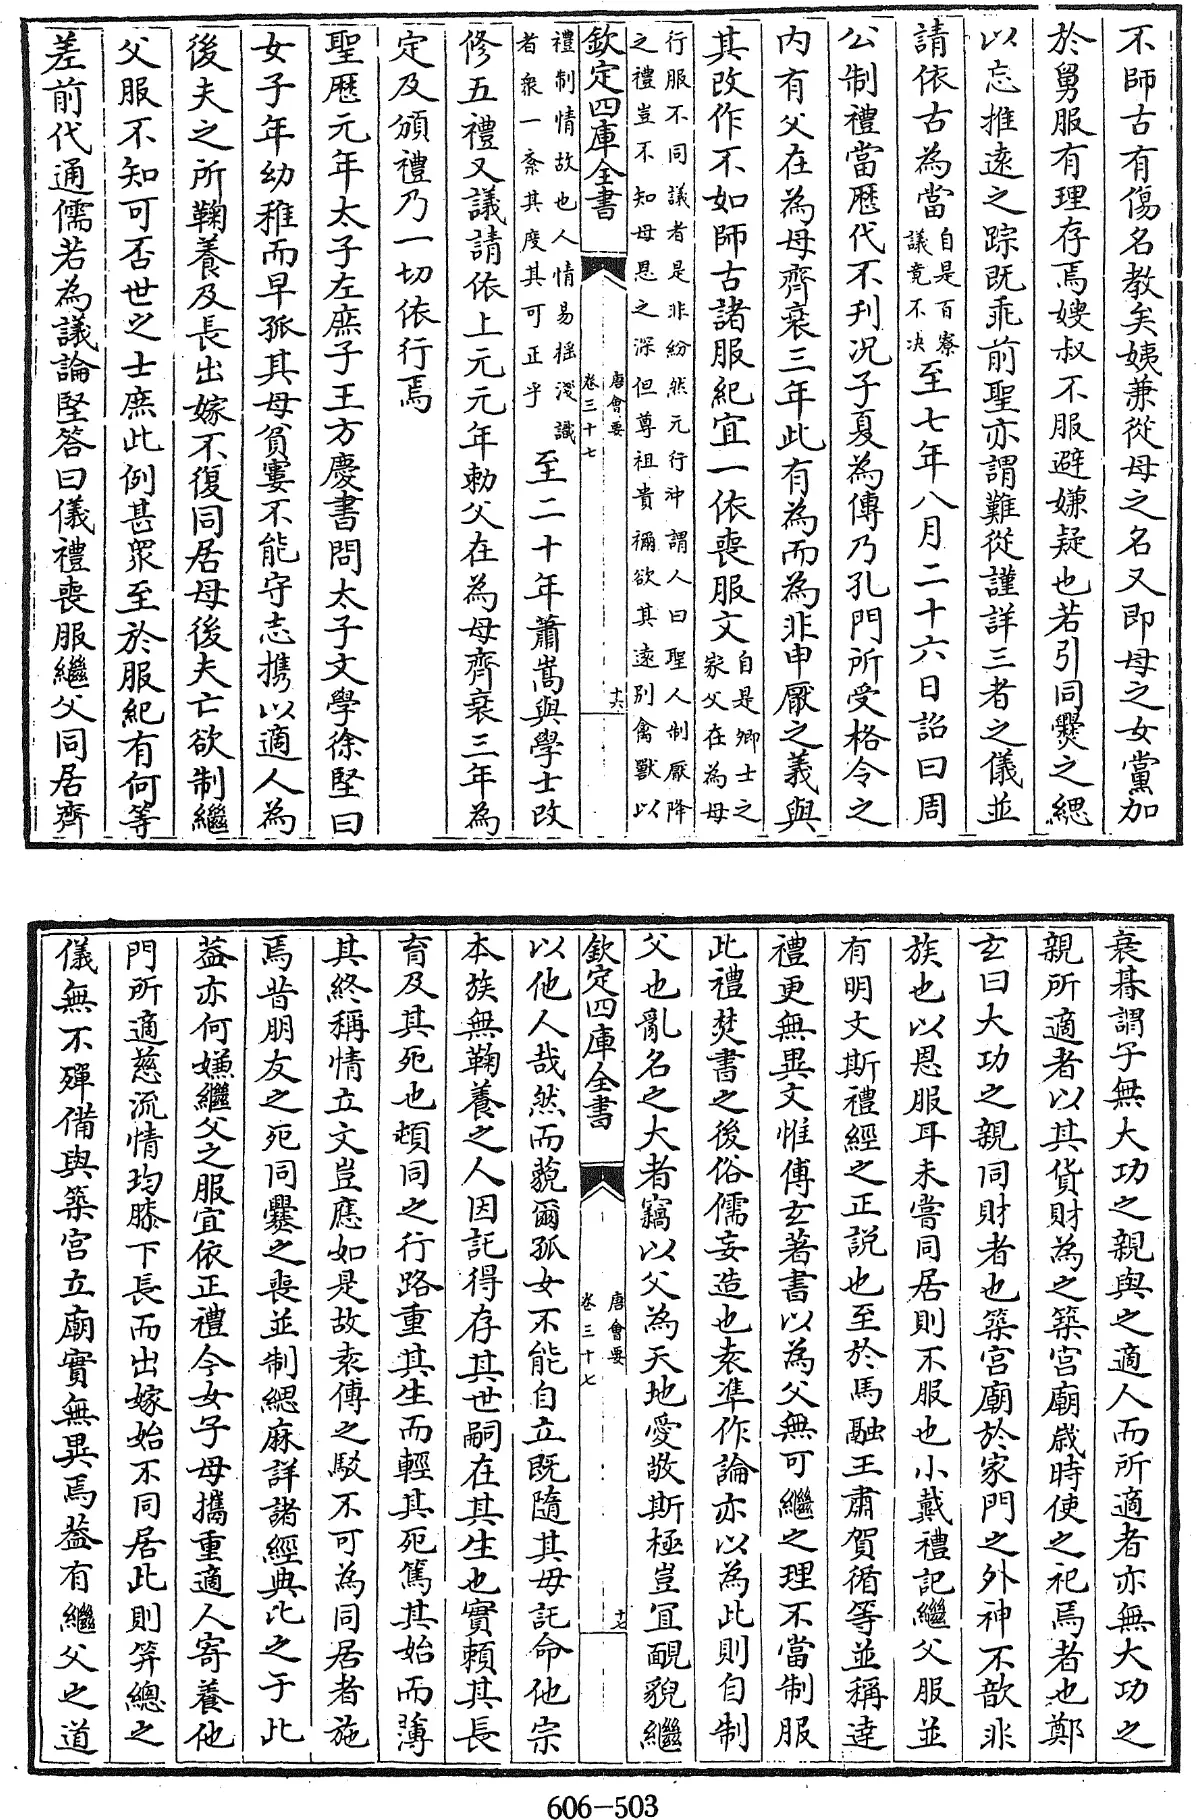 不師古有傷名教矣姨兼從母之名又即母之女黨加
於舅服有理存焉嫂叔不服避嫌疑也若引同爨之緦
以忘推遠之踪既乖前聖亦謂難從謹詳三者之儀並
請依古為當自是百寮議竟不決至七年八月二十六日詔曰周
公制禮當歴代不刋况子夏為傳乃孔門所受格令之
内有父在為母齊衰三年此有為而為非申厭之義與
其改作不如師古諸服紀宜一依喪服文自是卿士之家父在為母
行服不同議者是非紛然元行沖謂人曰聖人制厭降之禮豈不知母恩之深但尊祖貴禰欲其遠别禽獸以
欽定四庫全書
唐會要
卷三十七
十六
禮制情故也人情易揺淺識者衆一紊其度其可正乎至二十年蕭嵩與學士改
修五禮又議請依上元元年勅父在為母齊衰三年為
定及頒禮乃一切依行焉
聖歴元年太子左庶子王方慶書問太子文學徐堅曰
女子年幼稚而早孤其母貧窶不能守志携以適人為
後夫之所鞠養及長出嫁不復同居母後夫亡欲制繼
父服不知可否世之士庶此例甚衆至於服紀有何等
差前代通儒若為議論堅答曰儀禮喪服繼父同居齊
衰朞謂子無大功之親與之適人而所適者亦無大功之
親所適者以其貨財為之築宫廟歳時使之祀焉者也鄭
玄曰大功之親同財者也築宫廟於家門之外神不歆非
族也以恩服耳未嘗同居則不服也小戴禮記繼父服並
有明文斯禮經之正説也至於馬融王肅賀循等並稱達
禮更無異文惟傅玄著書以為父無可繼之理不當制服
此禮焚書之後俗儒妄造也袁凖作論亦以為此則自制
父也亂名之大者竊以父為天地愛敬斯極豈宜靦貌繼
欽定四庫全書
唐會要
卷三十七
十七
以他人哉然而藐爾孤女不能自立既隨其母託命他宗
本族無鞠養之人因託得存其世嗣在其生也實頼其長
育及其死也頓同之行路重其生而輕其死篤其始而薄
其終稱情立文豈應如是故袁傅之駁不可為同居者施
焉昔朋友之死同爨之喪並制緦麻詳諸經典比之于此
葢亦何嫌繼父之服宜依正禮今女子母攜重適人寄養他
門所適慈流情均膝下長而出嫁始不同居此則笄總之
儀無不殫備與築宫立廟實無異焉葢有繼父之道
606-503